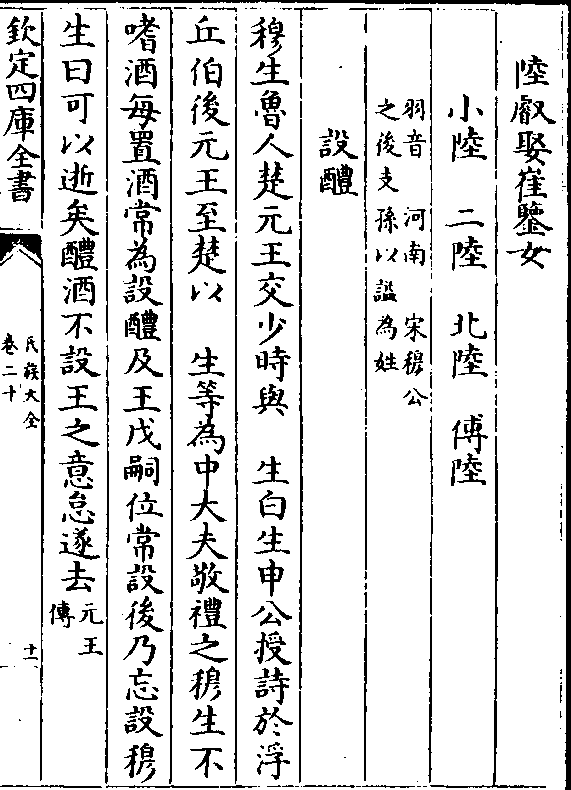 陸叡娶崔鑒女
小陸　二陸　北陸　傅陸
羽音　河南　宋穆公
之後支　孫以謚為姓
設醴
穆生魯人楚元王交少時與　生白生申公授詩於浮
丘伯後元王至楚以　生等為中大夫敬禮之穆生不
嗜酒每置酒常為設醴及王戊嗣位常設後乃忘設穆
生曰可以逝矣醴酒不設王之意怠遂去元王
傳
欽定四庫全書
氏族大全
卷二十
十一